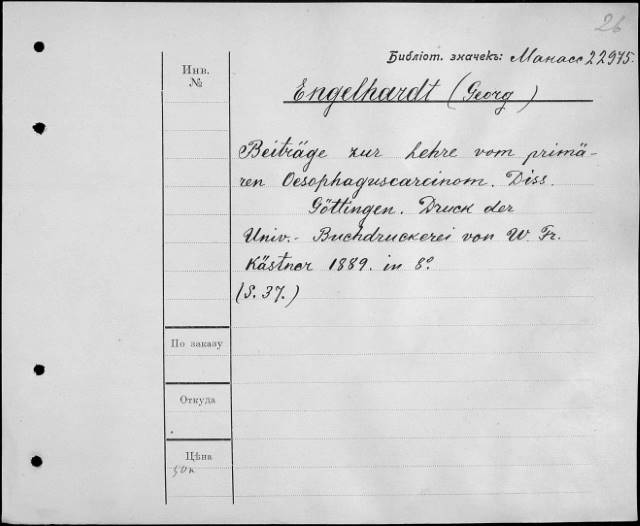 26
Библіот. значекъ: Манасс 22975.
Инв.
№
Engelhardt (Georg)
Beiträge zur Lehre vom primä-
ren Oesophaguscarcinom. Diss.
Göttingen. Druck der
Univ.- Buchdruckerei von W. Fr.
Kästner 1889. in 8°.
(S. 37.)
По заказу
Откуда
Цѣна
50к